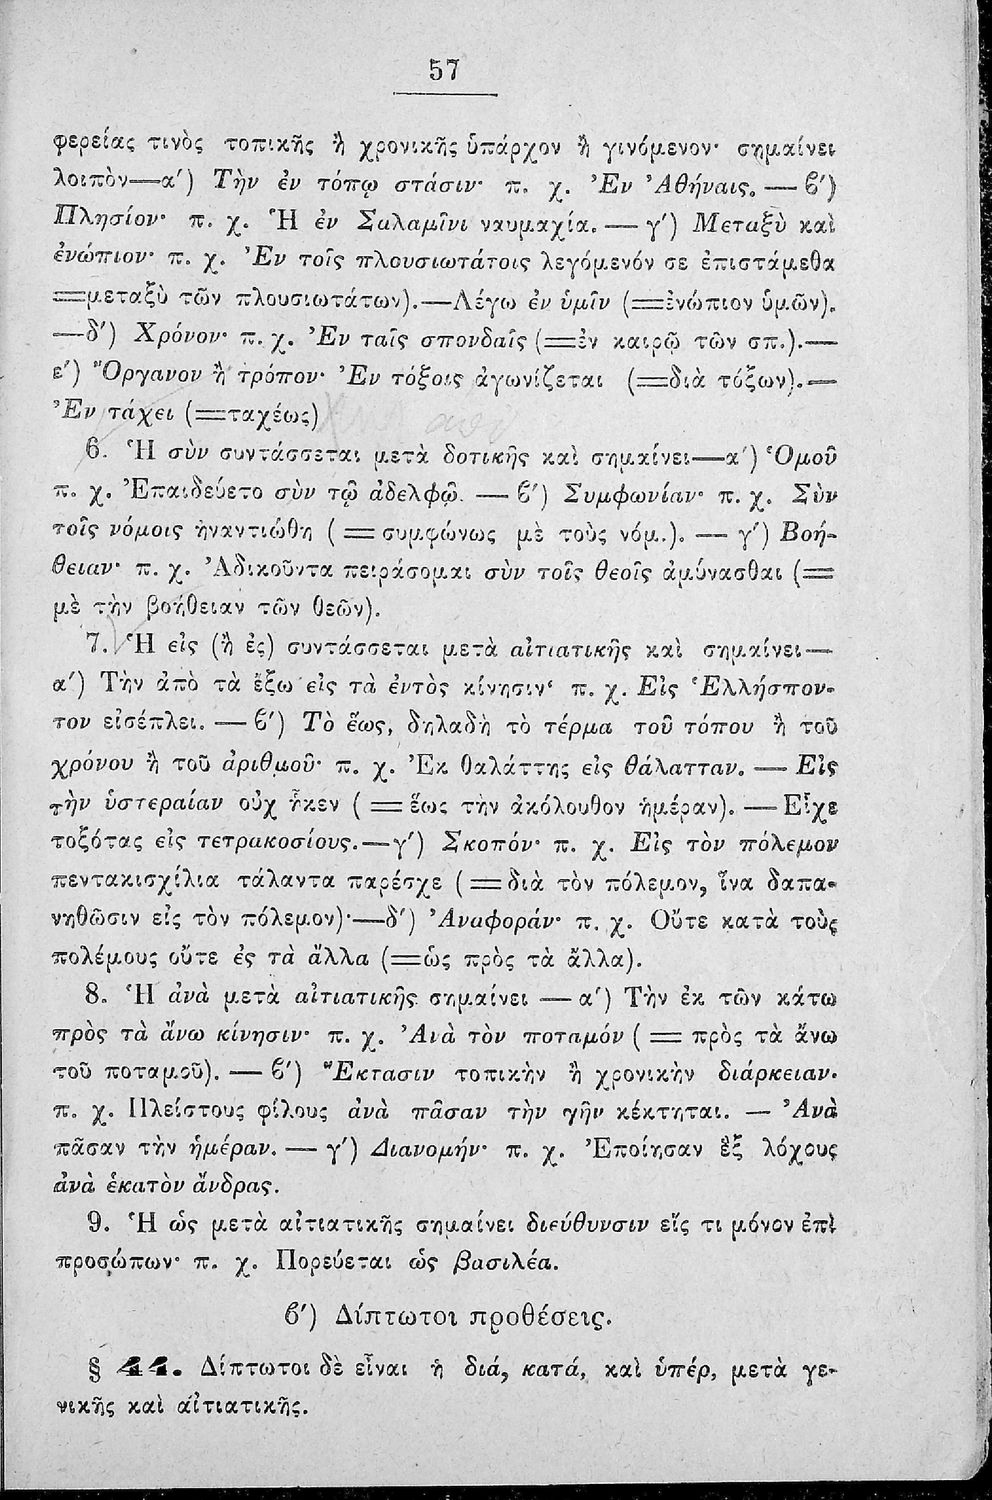 57
φερείας τινὸς τοπικῆς ἢ χρονικῆς ὑπάρχον ἢ γινόμενον· σημαίνει
λοιπὸν—α′) Τὴν ἐν τόπῳ στάσιν· π. χ. Ἐν Ἀθήναις.—ϐ′)
Πλησίον· π. χ. Ἡ ἐν Σαλαμῖνι ναυμαχία.—γ′) Μεταξὺ καὶ
ἐνώπιον· π. χ. Ἐν τοῖς πλουσιωτάτοις λεγόμενόν σε ἐπιστάμεθα
=μεταξὺ τῶν πλουσιωτάτων).—Λέγω ἐν ὑμῖν (=ἐνώπιον ὑμῶν).
—δ′) Χρόνον· π. χ. Ἐν ταῖς σπονδαῖς (=ἐν καιρῷ τῶν σπ.).—
ε′) Ὄργανον ἢ τρόπον· Ἐν τόξοις ἀγωνίζεται (=διὰ τόξων).—
Ἐν τάχει (=ταχέως)
6. Ἡ σὺν συντάσσεται μετὰ δοτικῆς καὶ σημαίνει—α′) Ὁμοῦ
π. χ. Ἐπαιδεύετο σὺν τῷ ἀδελφῷ.—ϐ′) Συμφωνίαν· π. χ. Σὺν
τοῖς νόμοις ἠναντιώθη (=συμφώνως μὲ τοὺς νόμ.).—γ′) Βοή-
θειαν· π. χ. Ἀδικοῦντα πειράσομαι σὺν τοῖς θεοῖς ἀμύνασθαι (=
μὲ τὴν βοήθειαν τῶν θεῶν).
7. Ἡ εἰς (ἢ ἐς) συντάσσεται μετὰ αἰτιατικῆς καὶ σημαίνει—
α′) Τὴν ἀπὸ τὰ ἔξω εἰς τὰ ἐντὸς κίνησιν· π. χ. Εἰς Ἑλλήσπον-
τον εἰσέπλει.—ϐ′) Τὸ ἕως, δηλαδὴ τὸ τέρμα τοῦ τόπου ἢ τοῦ
χρόνου ἢ τοῦ ἀριθμοῦ· π. χ. Ἐκ θαλάττης εἰς θάλατταν.—Εἰς
τὴν ὑστεραίαν οὐχ ἧκεν (=ἕως τὴν ἀκόλουθον ἡμέραν).—Εἶχε
τοξότας εἰς τετρακοσίους.—γ′) Σκοπόν· π. χ. Εἰς τὸν πόλεμον
πεντακισχίλια τάλαντα παρέσχε (=διὰ τὸν πόλεμον, ἵνα δαπα-
νηθῶσιν εἰς τὸν πόλεμον)·—δ′) Ἀναφοράν· π. χ. Οὔτε κατὰ τοὺς
πολέμους οὔτε ἐς τὰ ἄλλα (=ὡς πρὸς τὰ ἄλλα).
8. Ἡ ἀνὰ μετὰ αἰτιατικῆς σημαίνει—α′) Τὴν ἐκ τῶν κάτω
πρὸς τὰ ἄνω κίνησιν· π. χ. Ἀνὰ τὸν ποταμόν (=πρὸς τὰ ἄνω
τοῦ ποταμοῦ).—ϐ′) Ἔκτασιν τοπικὴν ἢ χρονικὴν διάρκειαν·
π. χ. Πλείστους φίλους ἀνὰ πᾶσαν τὴν γῆν κέκτηται.—Ἀνὰ
πᾶσαν τὴν ἡμέραν.—γ′) Διανομήν· π. χ. Ἐποίησαν ἓξ λόχους
ἀνὰ ἑκατὸν ἄνδρας.
9. Ἡ ὡς μετὰ αἰτιατικῆς σημαίνει διεύθυνσιν εἴς τι μόνον ἐπὶ
προσώπων· π. χ. Πορεύεται ὡς βασιλέα.
ϐ′) Δίπτωτοι προθέσεις.
§ 44. Δίπτωτοι δὲ εἶναι ἡ διά, κατά, καὶ ὑπέρ, μετὰ γε-
νικῆς καὶ αἰτιατικῆς.